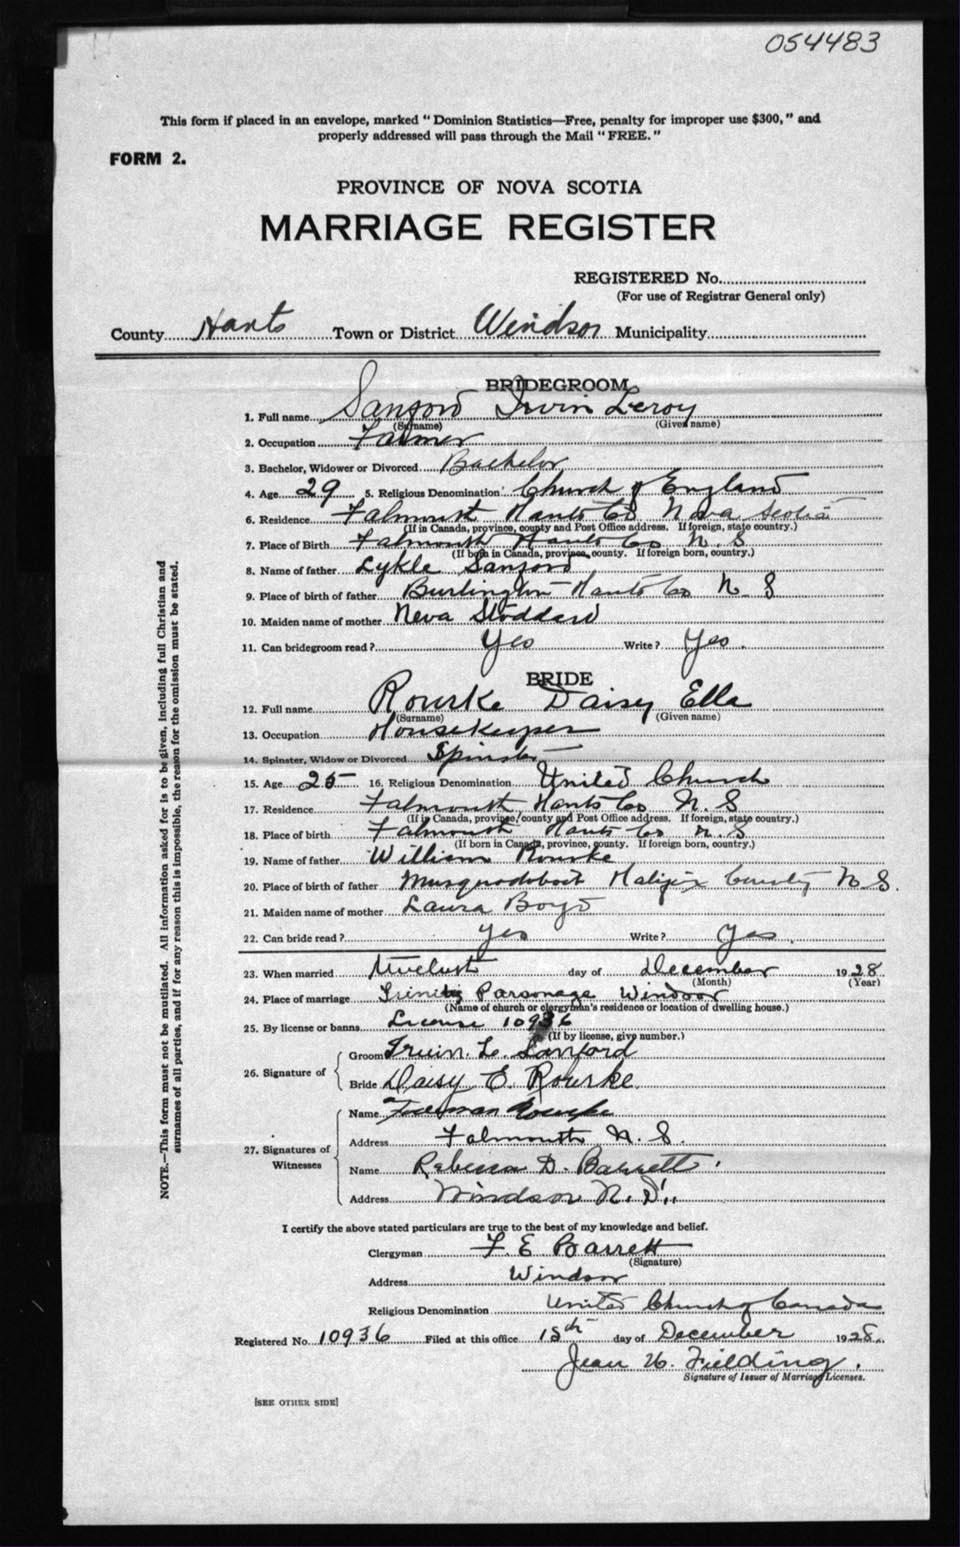 054483
This form if placed in an envelope, marked "Dominion Statistics—Free, penalty for improper use $300," and
properly addressed will pass through the Mail "FREE."
FORM 2.
PROVINCE OF NOVA SCOTIA
MARRIAGE REGISTER
REGISTERED No.
(For use of Registrar General only)
County Hants Town or District Windsor Municipality
BRIDEGROOM
1. Full name Sanford Irvin Leroy
(Surname) (Given name)
2. Occupation Farmer
3. Bachelor, Widower or Divorced Bachelor
4. Age 29 5. Religious Denomination Church of England
6. Residence Falmouth Hants Co Nova Scotia
(If in Canada, province, county and Post Office address. If foreign, state country.)
7. Place of Birth Falmouth Hants Co N. S
(If born in Canada, province, county. If foreign born, country.)
8. Name of father Lykle Sanford
9. Place of birth of father Burlington Hants Co N. S
10. Maiden name of mother Neva Stoddard
11. Can bridegroom read? Yes Write? Yes.
BRIDE
12. Full name Rourke Daisy Ella
(Surname) (Given name)
13. Occupation Housekeeper
14. Spinster, Widow or Divorced Spinster
15. Age 25 16. Religious Denomination United Church
17. Residence Falmouth Hants Co N. S
(If in Canada, province, county and Post Office address. If foreign, state country.)
18. Place of birth Falmouth Hants Co N. S
(If born in Canada, province, county. If foreign born, country.)
19. Name of father William Rourke
20. Place of birth of father Musquodoboit Halifax County N S.
21. Maiden name of mother Laura Boyd
22. Can bride read? Yes Write? Yes.
23. When married Twelvth day of December 1928
(Month) (Year)
24. Place of marriage Trinity Parsonage Windsor
(Name of church or clergyman's residence or location of dwelling house.)
25. By license or banns License 10936
(If by license, give number.)
26. Signature of Groom Irvin. L. Sanford
Bride Daisy E. Rourke
27. Signatures of Witnesses
Name Freeman Rourke
Address Falmouth N. S.
Name Rebecca D. Barrett
Address Windsor N. S.
I certify the above stated particulars are true to the best of my knowledge and belief.
Clergyman F. E Barrett
(Signature)
Address Windsor
Religious Denomination United Church of Canada
Registered No. 10936 Filed at this office 15th day of December 1928
Jean W. Fielding.
Signature of Issuer of Marriage Licenses.
[SEE OTHER SIDE]
NOTE.—This form must not be mutilated. All information asked for is to be given, including full Christian and
surnames of all parties, and if for any reason this is impossible, the reason for the omission must be stated.